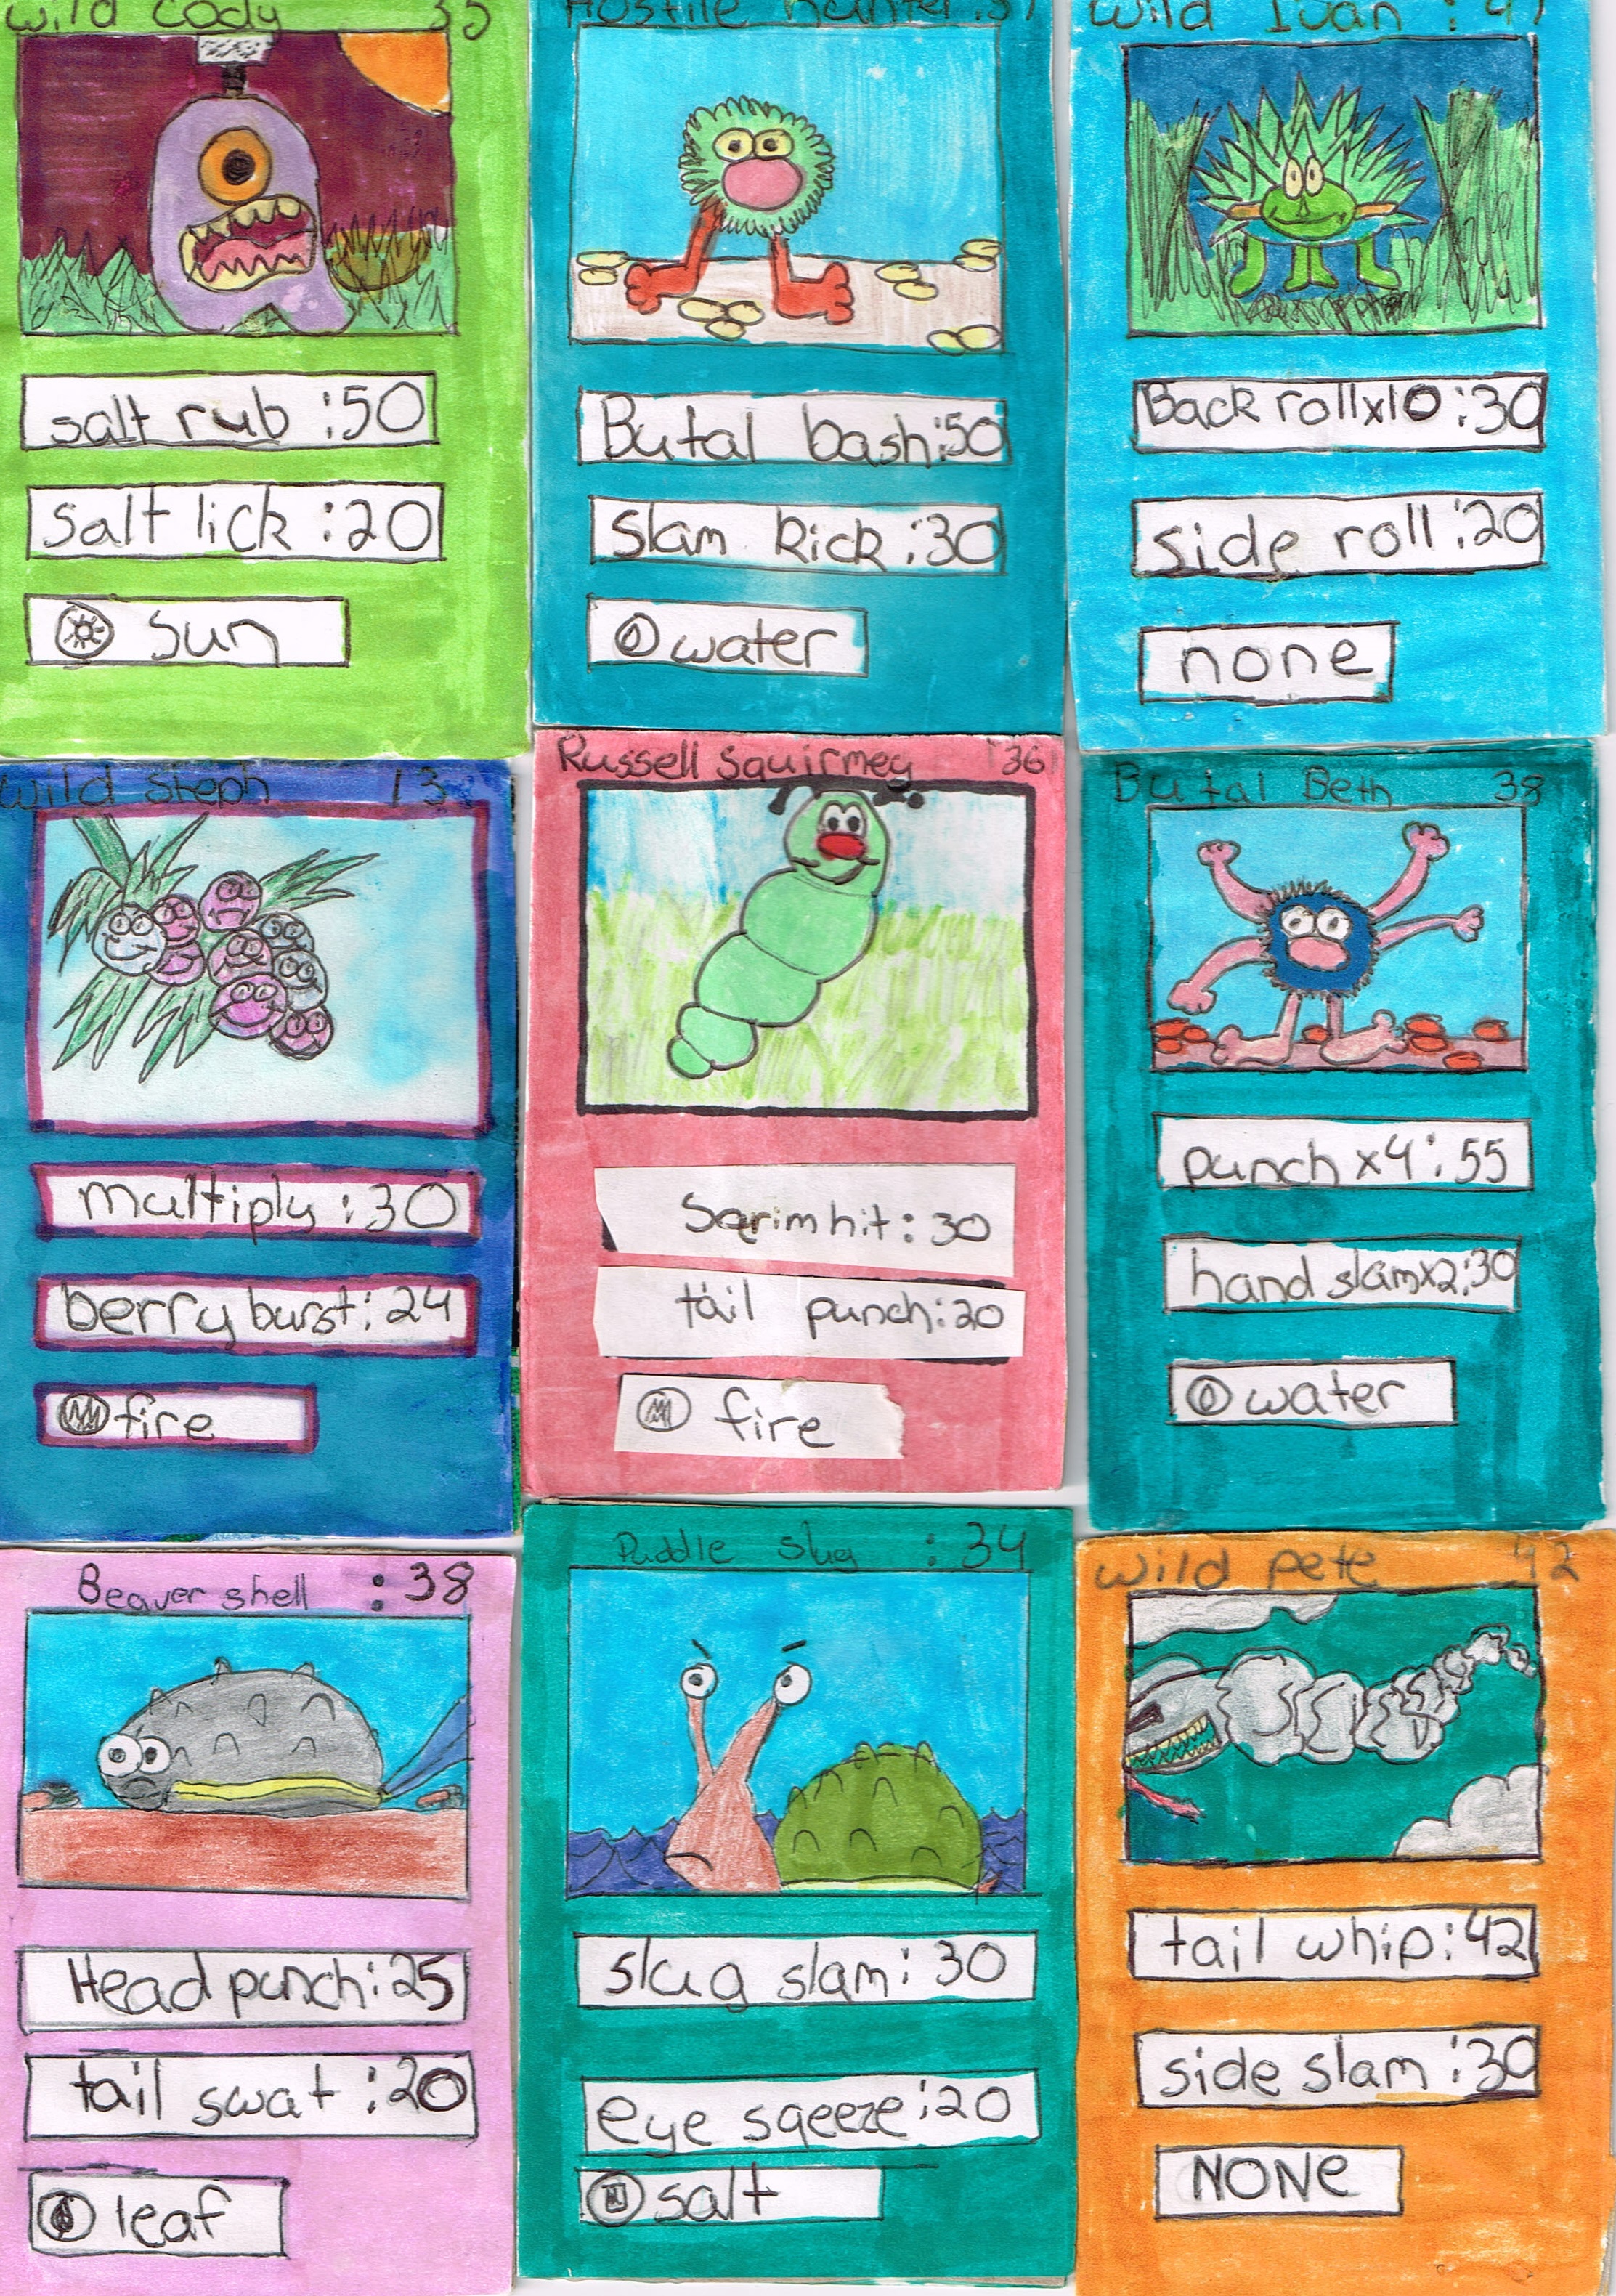 Wild Cody 35
salt rub :50
salt lick :20
sun
Hostile hunter :37
Butal bash:50
Slam kick:30
water
Wild Ivan : 47
Back rollx10:30
side roll:20
none
Wild Steph 13
multiply:30
berry burst:24
fire
Russell Squirmey :36
Sqrim hit: 30
tail punch:20
fire
Butal Beth 38
punch x4:55
hand slamx2:30
water
Beaver shell :38
Head punch:25
tail swat :20
leaf
Puddle slug :34
slug slam: 30
eye sqeeze:20
salt
Wild pete 42
tail whip:42
side slam:30
NONe